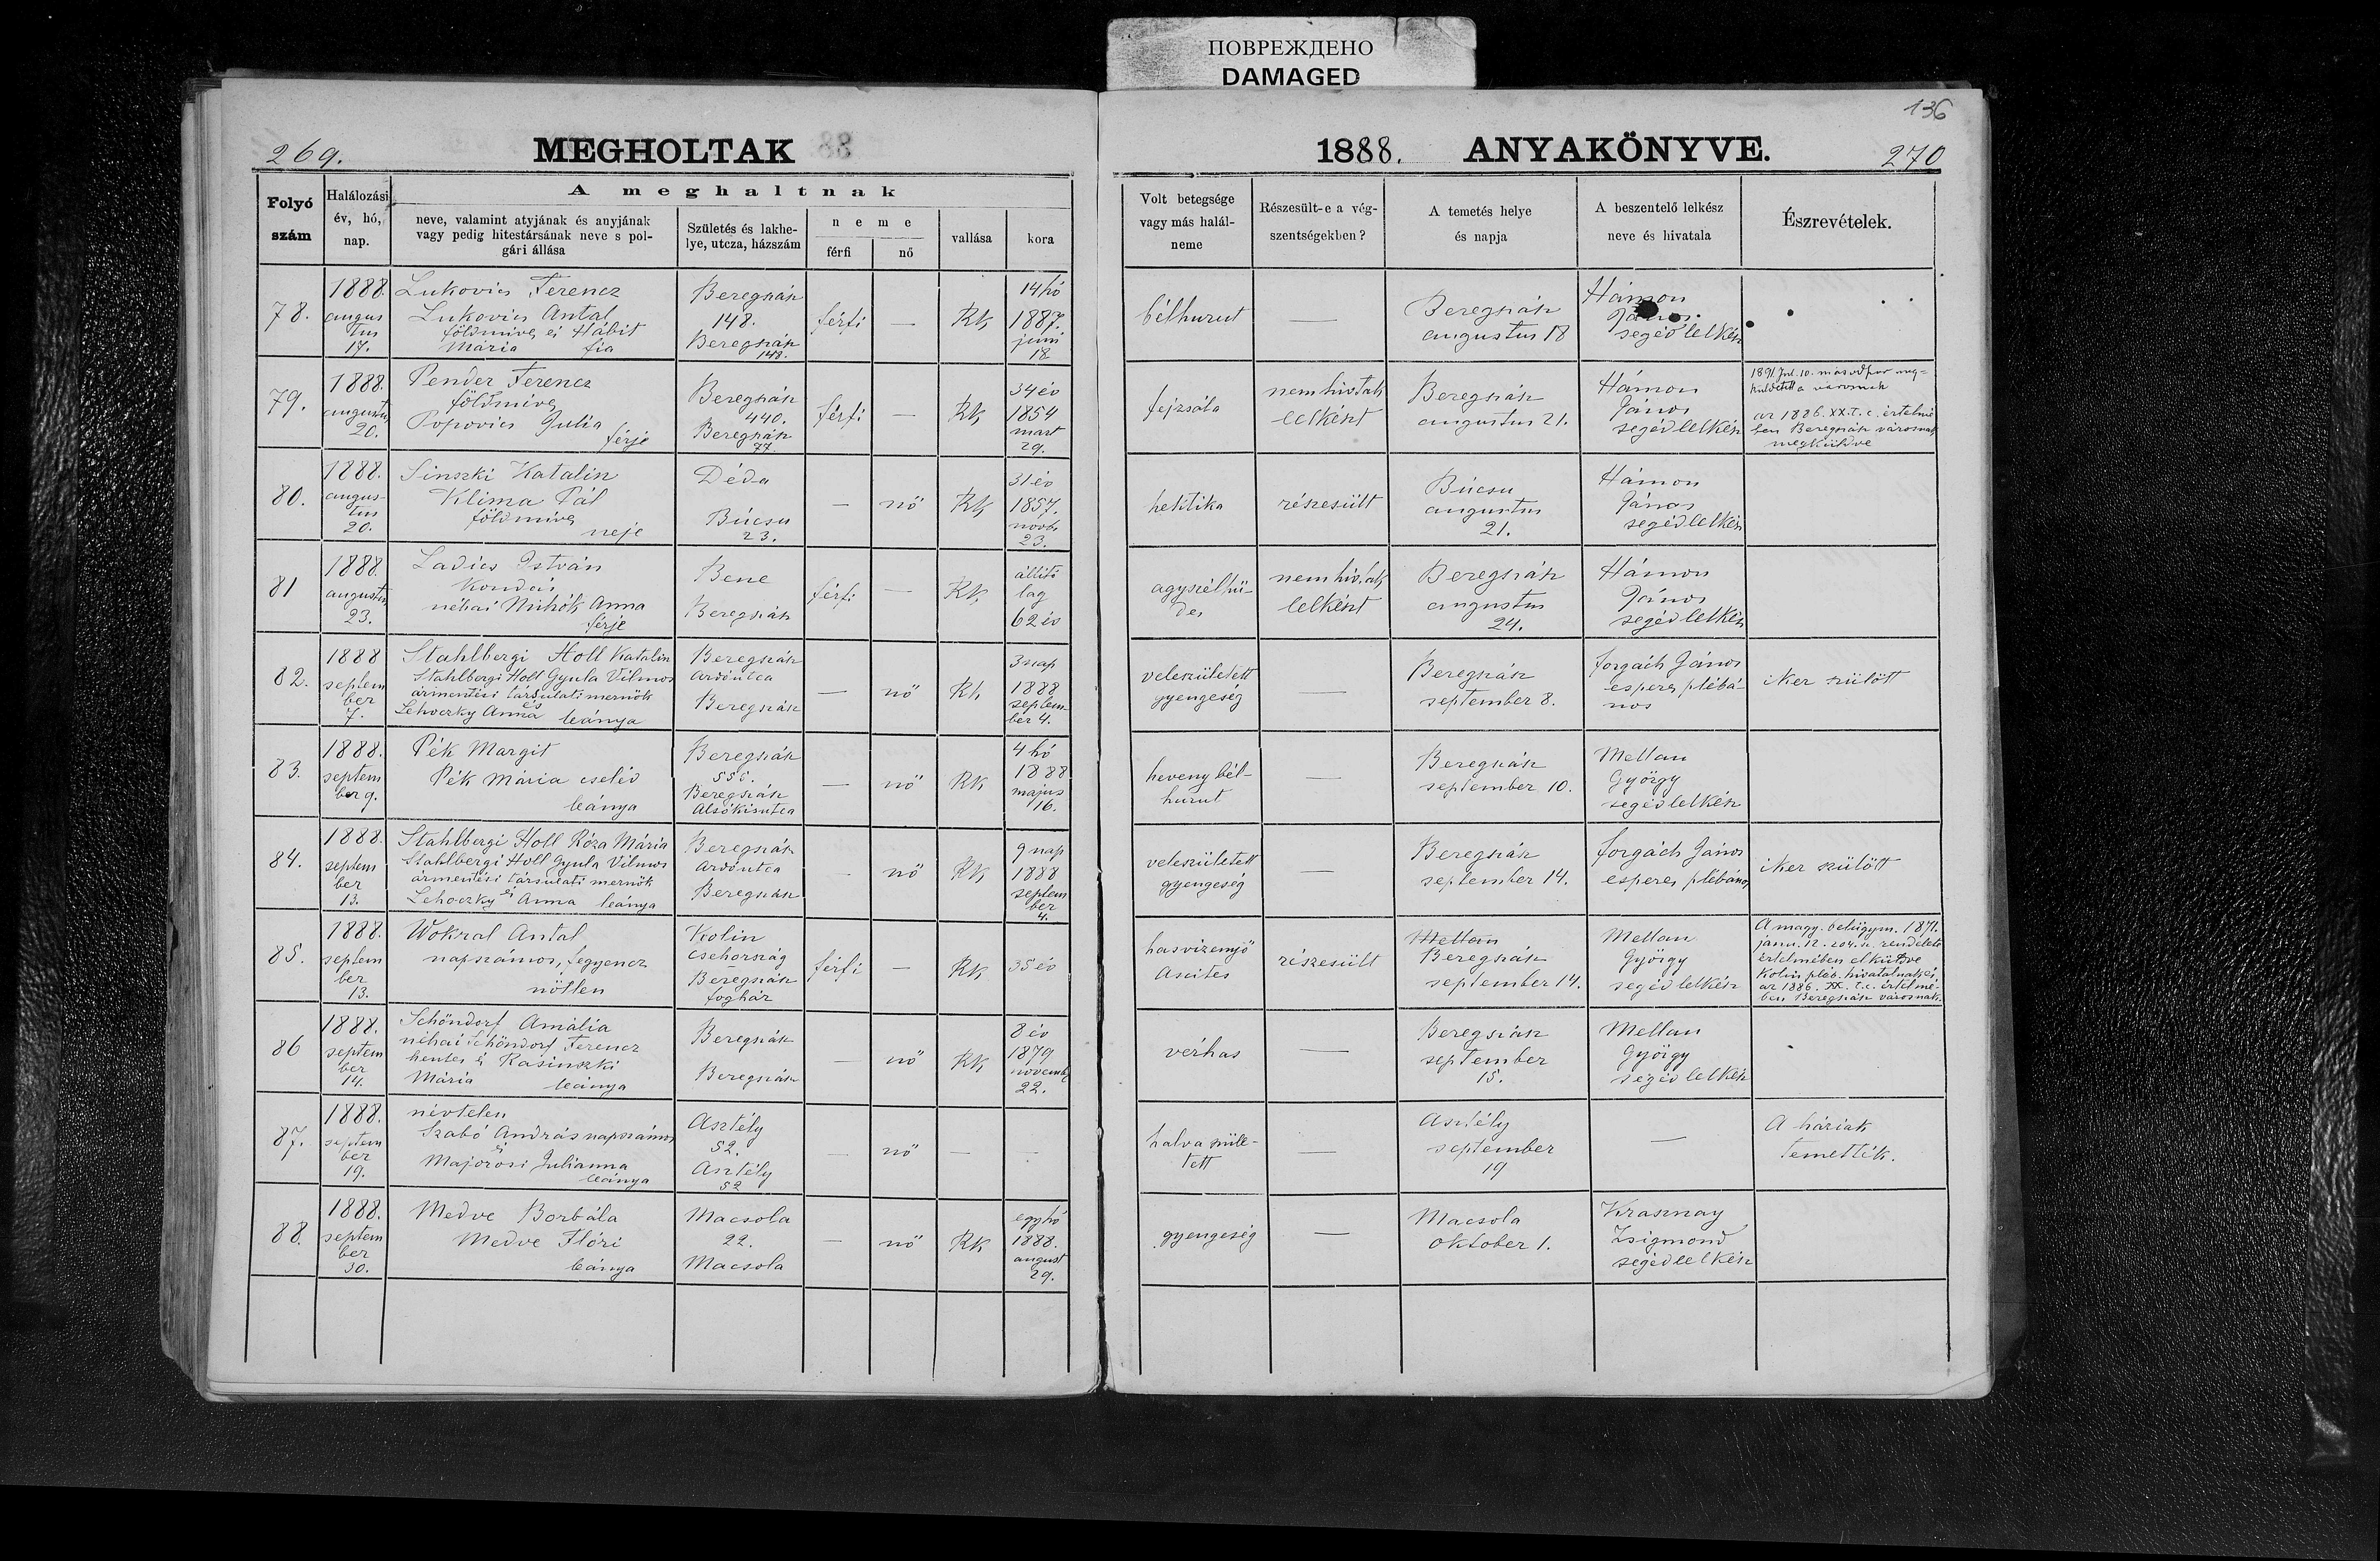 ПОВРЕЖДЕНО
DAMAGED
136
269.
MEGHOLTAK
1888.
ANYAKÖNYVE.
270
Folyó
szám
Halálozási
év, hó,
nap.
A meghaltnak
neve, valamint atyjának és anyjának
vagy pedig hitestársának neve s pol-
gári állása
Születés és lakhe-
lye, utcza, házszám
neme
férfi
nő
vallása
kora
Volt betegsége
vagy más halál-
neme
Részesült-e a vég-
szentségekben?
A temetés helye
és napja
A beszentelő lelkész
neve és hivatala
Észrevételek.
78.
1888.
augus
tus
17.
Lukovics Ferencz
Lukovics Antal
földmives és Hábit
Mária fia
Beregszász
148.
Beregszász
148.
férfi
—
RK
14 hó
1887.
juni
18
bélhurut
—
Beregszász
augustus 18
Hámon
János
segédlelkész
79.
1888.
augustus
20.
Pender Ferencz
földmives
Popovics Julia
férje
Beregszász
440.
Beregszász
77.
férfi
—
RK
34 év
1854
mart
29.
fejzsába
nem hivtak
lelkészt
Beregszász
augustus 21.
Hámon
János
segédlelkész
1891 Jul. 10. másodszor meg-
küldetett a városnak
az 1886. XX. t. c. értelmé
ben Beregszász városnak
megküldve
80.
1888.
augus-
tus
20.
Sinszki Katalin
Klima Pál
földmives
neje
Déda
Búcsu
23.
—
nő
RK
31 év
1857.
novbr
23.
hektika
részesült
Búcsu
augustus
21.
Hámon
János
segédlelkész
81
1888.
augustus
23.
Ladics István
Kondás
néhai Mihók Anna
férje
Bene
Beregszász
férfi
—
RK
állitó
lag
62 év
agyszélhü-
dés
nem hivtak
lelkészt
Beregszász
augustus
24.
Hámon
János
segédlelkész
82.
1888
septem
ber
7.
Stahlbergi Holl Katalin
Stahlbergi Holl Gyula Vilmos
ármentési társulati mérnök
és
Lehoczky Anna leánya
Beregszász
Ardóutca
Beregszász
—
nő
RK
3 nap
1888
septem-
ber 4.
veleszületett
gyengeség
—
Beregszász
september 8.
forgách János
esperes plébá-
nos
iker szülött
83.
1888.
septem
ber 9.
Pék Margit
Pék Mária cseléd
leánya
Beregszász
Beregszász
Alsókisutca
—
nő
RK
4 hó
1888
majus
16.
heveny bél-
hurut
—
Beregszász
september 10.
Mellau
György
segédlelkész
84.
1888.
septem
ber
13.
Stahlbergi Holl Róza Mária
Stahlbergi Holl Gyula Vilmos
ármentési társulati mérnök
és
Lehoczky Anna leánya
Beregszász
Ardóutca
Beregszász
—
nő
RK
9 nap
1888
septem
ber
4.
veleszületett
gyengeség
—
Beregszász
september 14.
forgách János
esperes plébános
iker szülött
85.
1888.
septem
ber
13.
Wokral Antal
napszámos, fegyencz
nőtlen
Kolin
Csehország
Beregszász
fogház
férfi
—
RK
35 év
hasvizenyő
Ascites
részesült
Mellau
Beregszász
september 14.
Mellau
György
segédlelkész
A magy. belügym. 1871.
janu. 12. 204. sz. rendelete
értelmében elküldve
Kolin pléb. hivatalnak és
az 1886. XX. t. c. értelmé-
ben Beregszász városnak.
86
1888.
septem
ber
14.
Schöndorf Amália
néhai Schöndorf Ferencz
hentes és Kasinszki
Mária leánya
Beregszász
Beregszász
—
nő
RK
8 év
1879
novemb.
22.
vérhas
—
Beregszász
september
15.
Mellau
György
segédlelkész
87.
1888.
septem
ber
19.
névtelen
Szabó András napszámos
és
Majorosi Julianna
leánya
Asztély
52.
Asztély
52
—
nő
—
—
halva szüle-
tett
—
Asztély
september
19
—
A háziak
temették.
88.
1888.
septem
ber
30.
Medve Borbála
Medve Flóri
leánya
Macsola
22.
Macsola
—
nő
RK
egy hó
1888.
august
29.
gyengeség
—
Macsola
oktober 1.
Krasznay
Zsigmond
segédlelkész